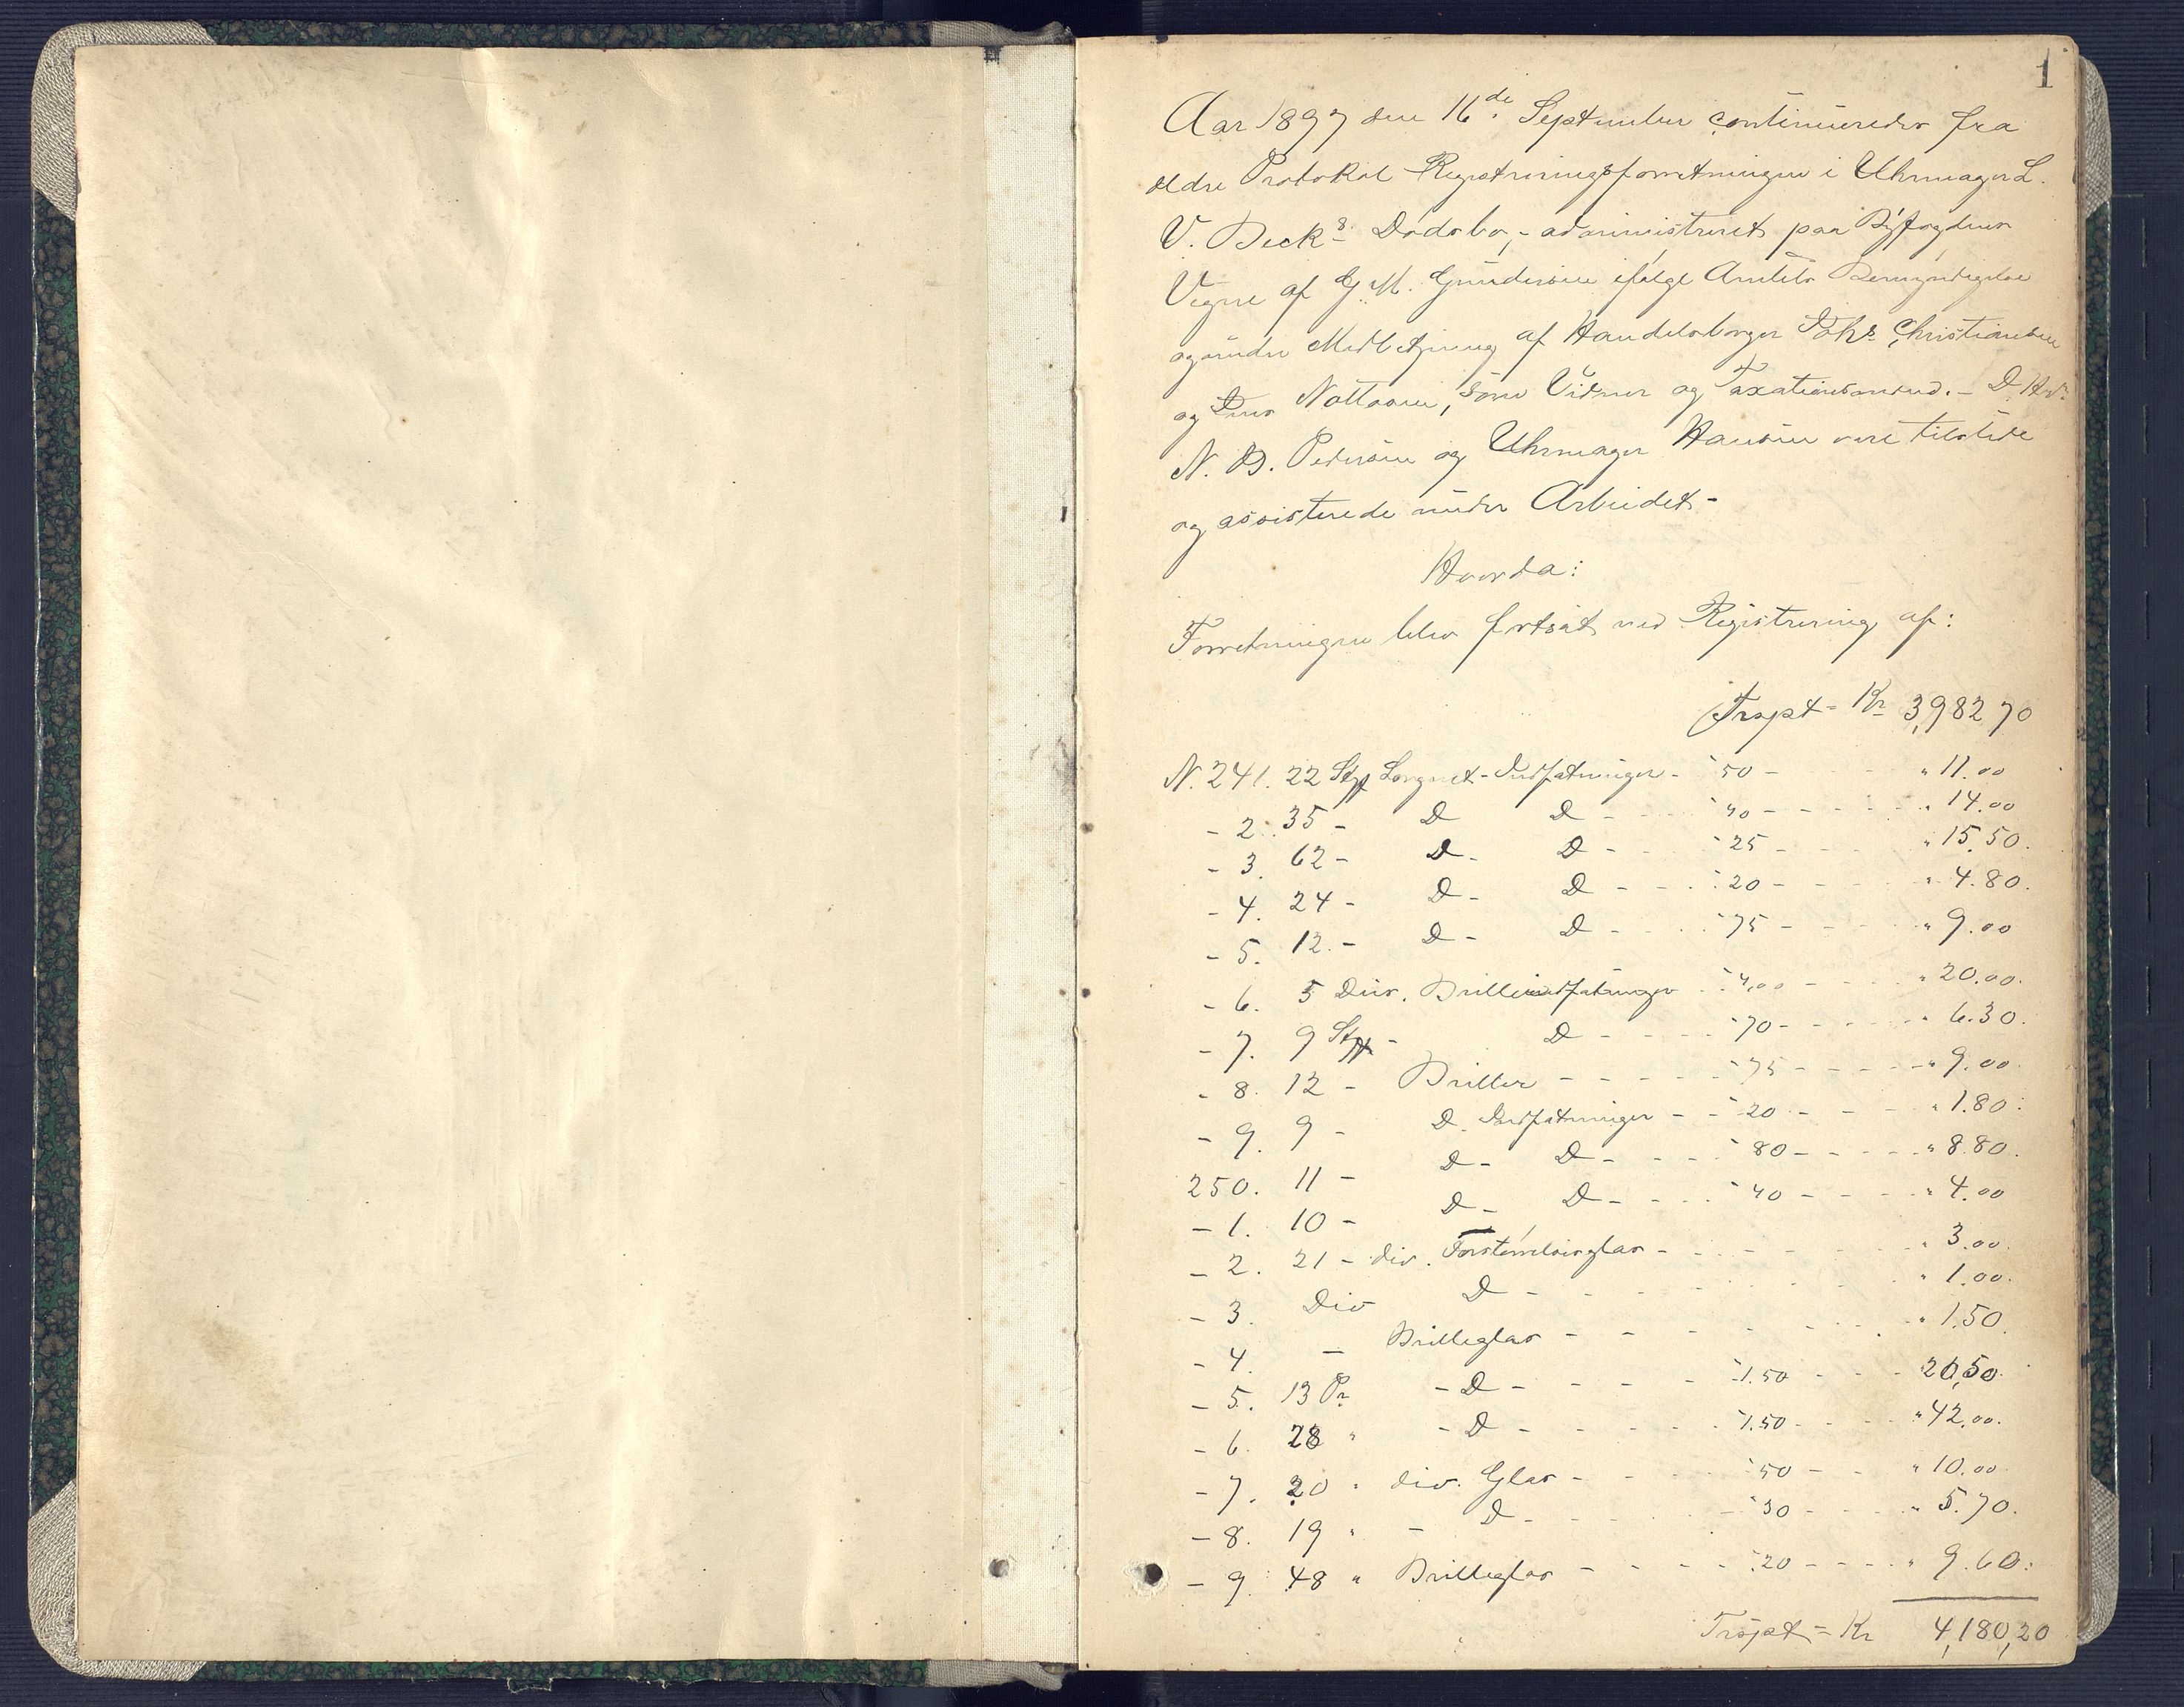 1
Aar 1897 den 16de September continueredes fra
ældre Protokol Registreringsforretningen i Uhrmager L.
V. Becks Dødsbo, - administreret paa Byfogdens
Vegne af G. M. Gundersen ifølge Amtets Bemyndigelse
og under Medbetjening af Handelsborger Johs Christiansen
og Jens Nottosen, som Vidner og Taxationsmænd. - D Hrr
N. B. Pedersen og Uhrmager Hansen vare tilstede
og assisterede under Arbeidet -
Hvorda:
Forretningen blev fortsat ved Registrering af:
Trspt = Kr 3,982 70
N. 241. 22 Stpk Lorgnet-Indfatninger - " 50 - " 11.00
- 2. 35 - D D - - " 40 - - - - " 14.00
- 3. 62 - D - D - - " 25 - - - " 15.50.
- 4. 24 - D - D - - - " 20 - - - " 4.80.
- 5. 12. - D - D - - - " 75 - - - " 9.00
- 6. 5 Dus. Brilleindfatninger - " 4,00 - - " 20.00.
- 7. 9 Stpk - D - - - " 70 - - - - " 6.30.
- 8. 12 - Briller - - - - " 75 - - - - " 9.00
- 9. 9 - D. Indfatninger - - " 20 - - - " 1.80.
250. 11 - D - D - - - " 80 - - - - " 8.80.
- 1. 10 - D - D - - - " 40 - - - - " 4.00
- 2. 21 - div. Forstørrelsesglas - - - - " 3.00.
- 3. Div D - - - - - " 1.00.
- 4. - Brilleglas - - - - - - " 1.50.
- 5. 13 Pr - D - - - - - " 1.50 - - - " 20,50.
- 6. 28 " - D - - - - - " 1.50 - - - " 42.00.
- 7. 20 " div. Glas - - - " 50 - - " 10.00
- 8. 19 " - D - - - - " 30 - - - - " 5.70.
- 9. 48 " Brilleglas - - - - " 20 - - - - " 9.60.
Trspt = Kr 4,180,20